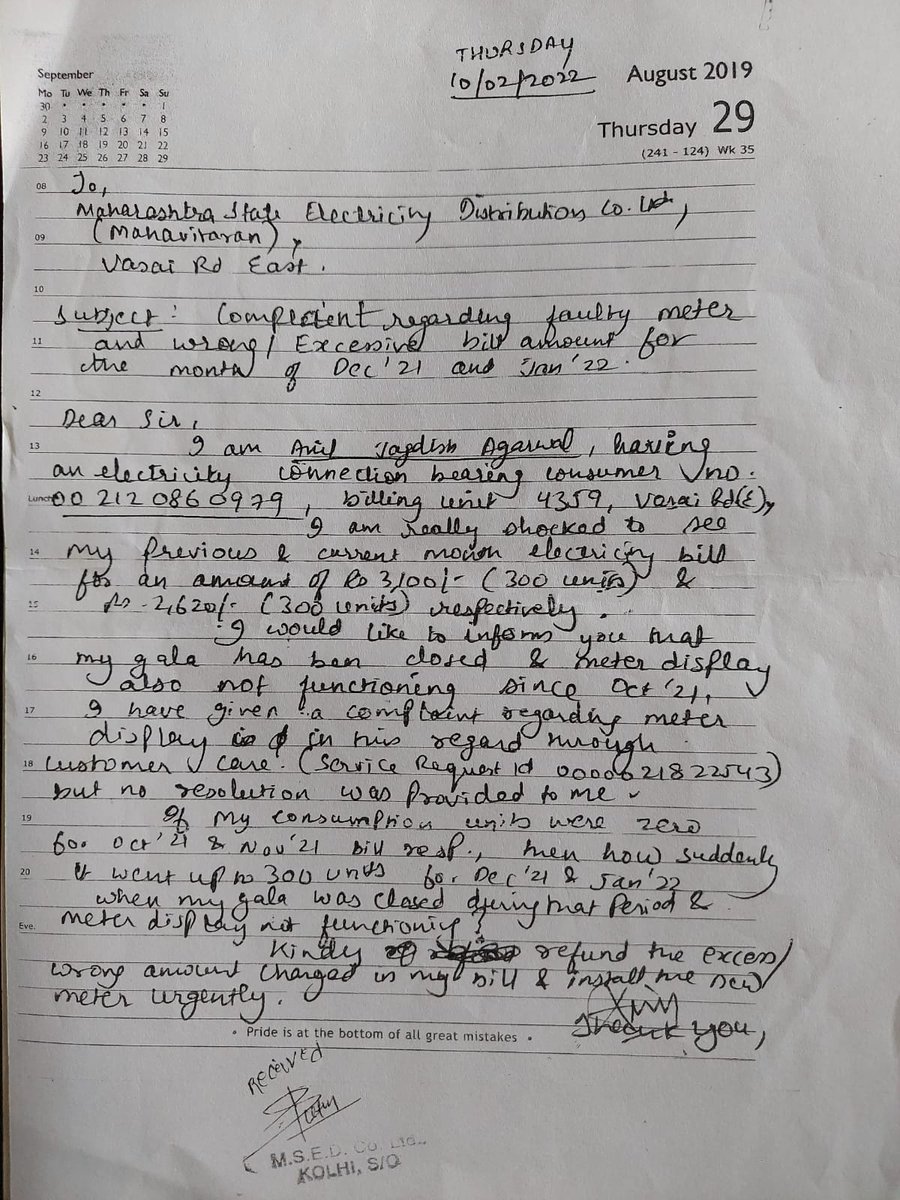 THURSDAY
10/02/2022
September
Mo Tu We Th Fr Sa Su
30 • • • • • 1
2 3 4 5 6 7 8
9 10 11 12 13 14 15
16 17 18 19 20 21 22
23 24 25 26 27 28 29
August 2019
Thursday 29
(241 - 124) Wk 35
08 To,
Maharashtra State Electricity Distribution Co. Ltd,
09 (Mahavitaran),
Vasai Rd East.
10
Subject: Complaint regarding faulty meter
11 and wrong/Excessive bill amount for
the month of Dec'21 and Jan'22.
12
Dear Sir,
13 I am Anil Jagdish Agarwal, having
an electricity connection bearing consumer no.
Lunch 002120860979, billing unit 4359, Vasai Rd(E),
I am really shocked to see
14 my previous & current month electricity bill
for an amount of Rs 3,100/- (300 units) &
15 Rs. 2,620/- (300 units) respectively.
I would like to inform you that
16 my gala has ben closed & meter display
also not functioning since Oct'21,
17 I have given a complaint regarding meter
display in this regard through
18 customer care. (Service Request Id 0000621822543)
but no resolution was provided to me.
19 If my consumption units were zero
for Oct'21 & Nov'21 bill resp., then how suddenly
20 it went up to 300 units for Dec'21 & Jan'22
when my gala was closed during that period &
Eve. meter display not functioning?
Kindly refund the excess/
wrong amount charged in my bill & install the new
meter urgently.
Thank you,
• Pride is at the bottom of all great mistakes •
RECEIVED
M.S.E.D. Co. Ltd.,
KOLHI, S/O